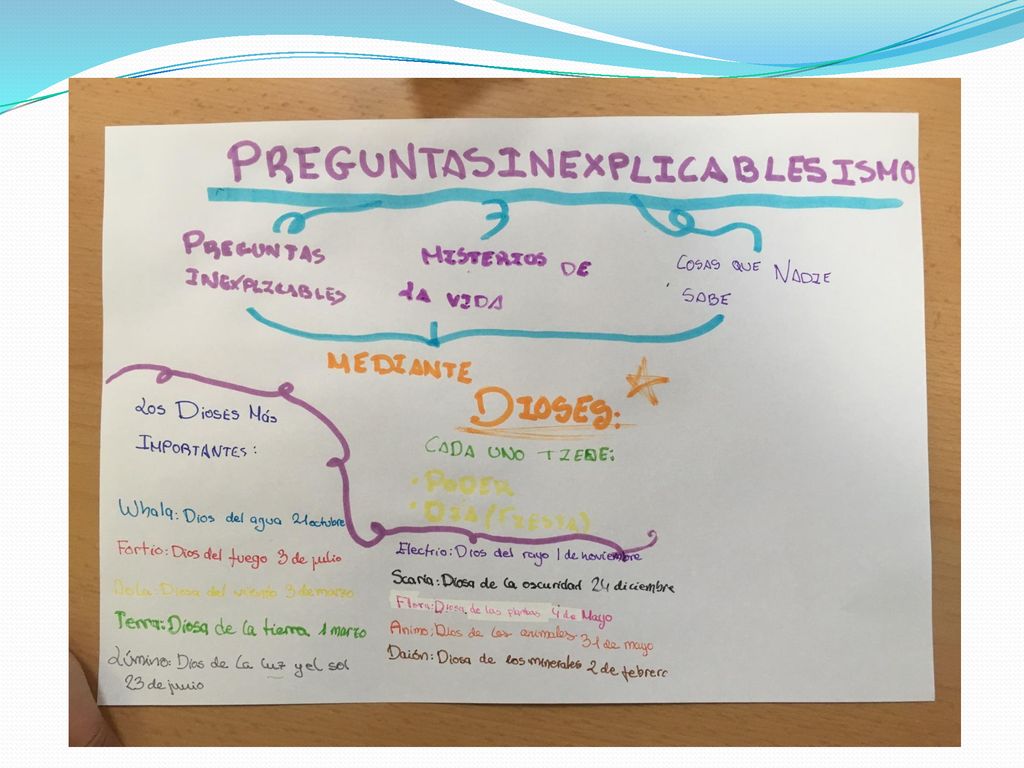 PREGUNTASINEXPLICABLESISMO
PREGUNTAS
INEXPLICABLES
MISTERIOS DE
LA VIDA
COSAS QUE NADIE
SABE
MEDIANTE
DIOSES:
CADA UNO TIENE:
· PODER
· DÍA (FIESTA)
LOS DIOSES MÁS
IMPORTANTES:
Whala: Dios del agua 21 octubre
Fortio: Dios del fuego 3 de julio
Diosa del viento 3 de marzo
Terra: Diosa de la tierra 1 marzo
Lúmino: Dios de la luz y el sol
23 de junio
Electrio: Dios del rayo 1 de noviembre
Scaria: Diosa de la oscuridad 24 diciembre
Flora: Diosa de las plantas 4 de Mayo
Animo: Dios de los animales 31 de mayo
Daión: Diosa de los minerales 2 de febrero